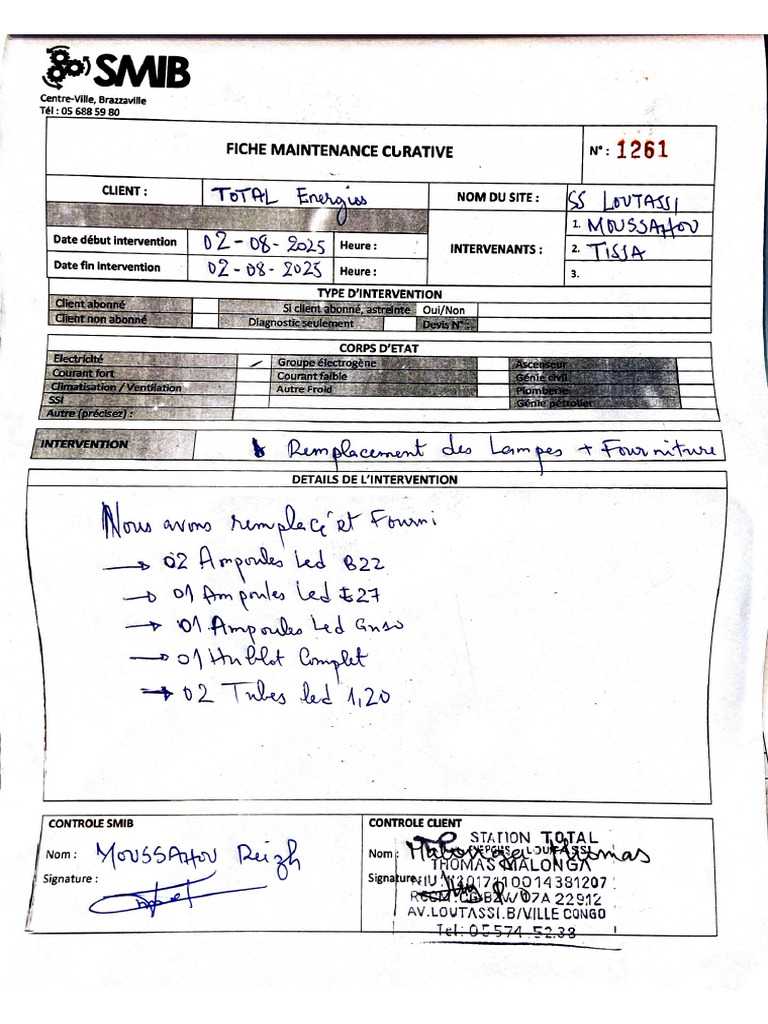 SMIB
Centre-Ville, Brazzaville
Tél : 05 688 59 80
FICHE MAINTENANCE CURATIVE
N° : 1261
CLIENT : TOTAL Energies
NOM DU SITE : SS LOUTASSI
Date début intervention 02-08-2025 Heure :
Date fin intervention 02-08-2025 Heure :
INTERVENANTS :
1. MOUSSAHOU
2. TISSA
3.
TYPE D'INTERVENTION
Client abonné Si client abonné, astreinte Oui/Non
Client non abonné Diagnostic seulement Devis N° :
CORPS D'ETAT
Electricité Groupe électrogène Ascenseur
Courant fort Courant faible Génie civil
Climatisation / Ventilation Autre Froid Plomberie
SSI Génie pétrolier
Autre (précisez) :
INTERVENTION Remplacement des Lampes + Fourniture
DETAILS DE L'INTERVENTION
Nous avons remplacé et Fourni
→ 02 Ampoules Led B22
→ 01 Ampoules Led E27
→ 01 Ampoules Led
→ 01 Hublot Complet
→ 02 Tubes led 1,20
CONTROLE SMIB
Nom : MOUSSAHOU Reizh
Signature :
CONTROLE CLIENT
Nom : Malonga Thomas
Signature :
STATION TOTAL
ENERGIES LOUTASSI
THOMAS MALONGA
AV.LOUTASSI.B/VILLE CONGO
Tel: 05 574 52 38